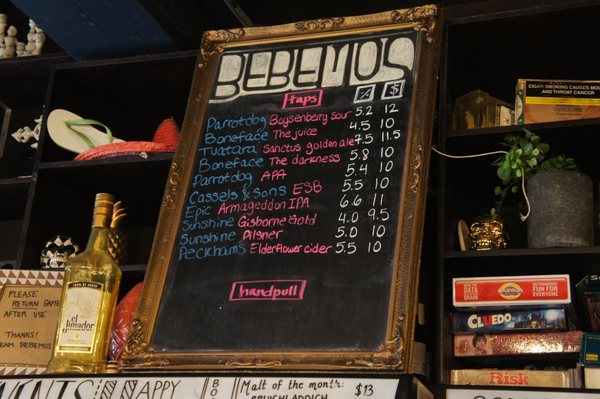 BEBEMOS
Taps % $
Parrotdog Boysenberry sour 5.2 12
Boneface The juice 4.5 10
Tuatara Sanctus golden ale 7.5 11.5
Boneface The darkness 5.8 10
Parrotdog APA 5.4 10
Cassels & Sons ESB 5.5 10
Epic Armageddon IPA 6.6 11
Sunshine Gisborne Gold 4.0 9.5
Sunshine Pilsner 5.0 10
Peckham's Elderflower cider 5.5 10
handpull
CIGAR SMOKING CAUSES MOU
AND THROAT CANCER
PLEASE
RETURN GAME
AFTER USE
THANKS!
TEAM BEBEMOS
el Jimador
RANKING
OUTRAGEOUS
FUN FOR
EVERYONE
CLUEDO
Risk
NAPPY
Malt of the month: $13
BRUICHLADDICH